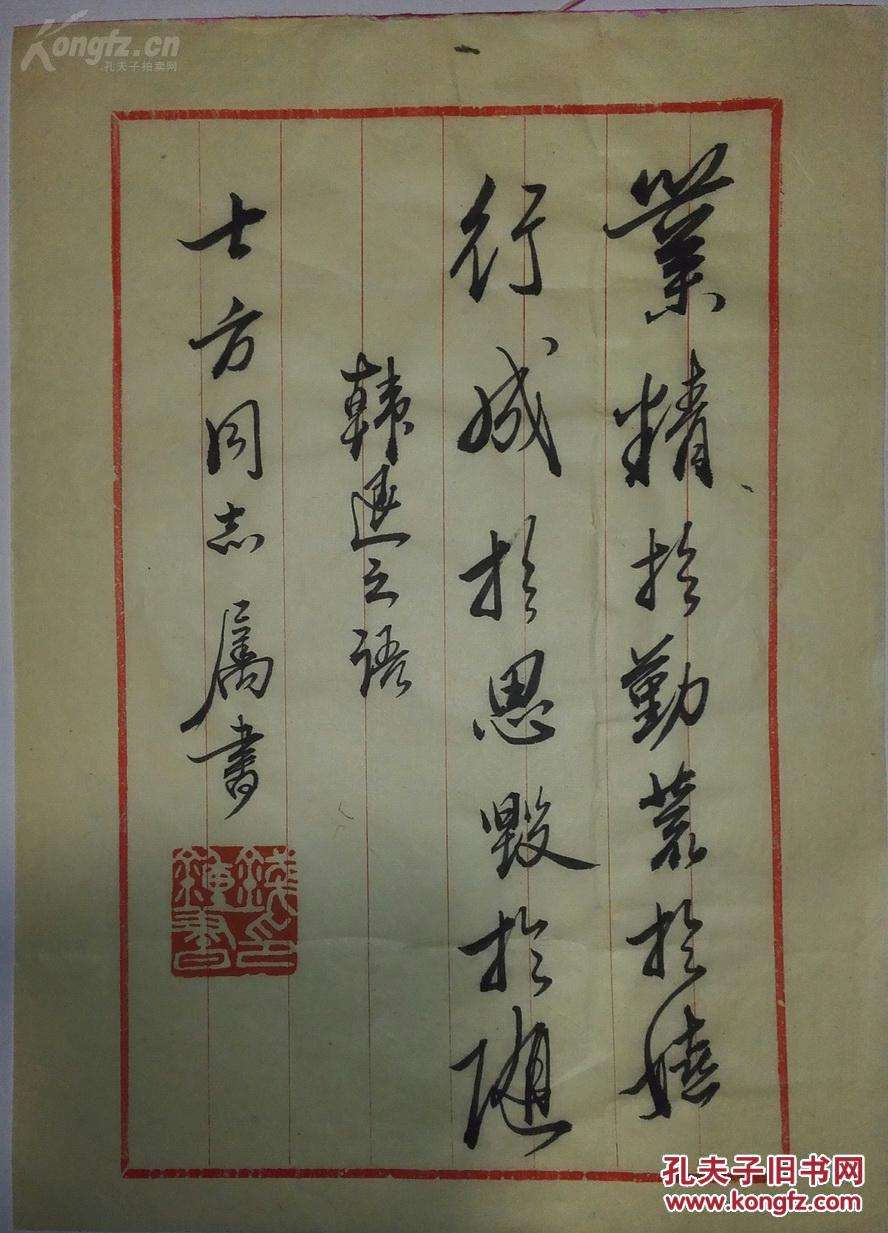 業精於勤荒於嬉
行成於思毁於随
韩退之语
士方同志属书
钱锺书印
Kongfz.cn
孔夫子拍卖网
孔夫子旧书网
www.kongfz.com